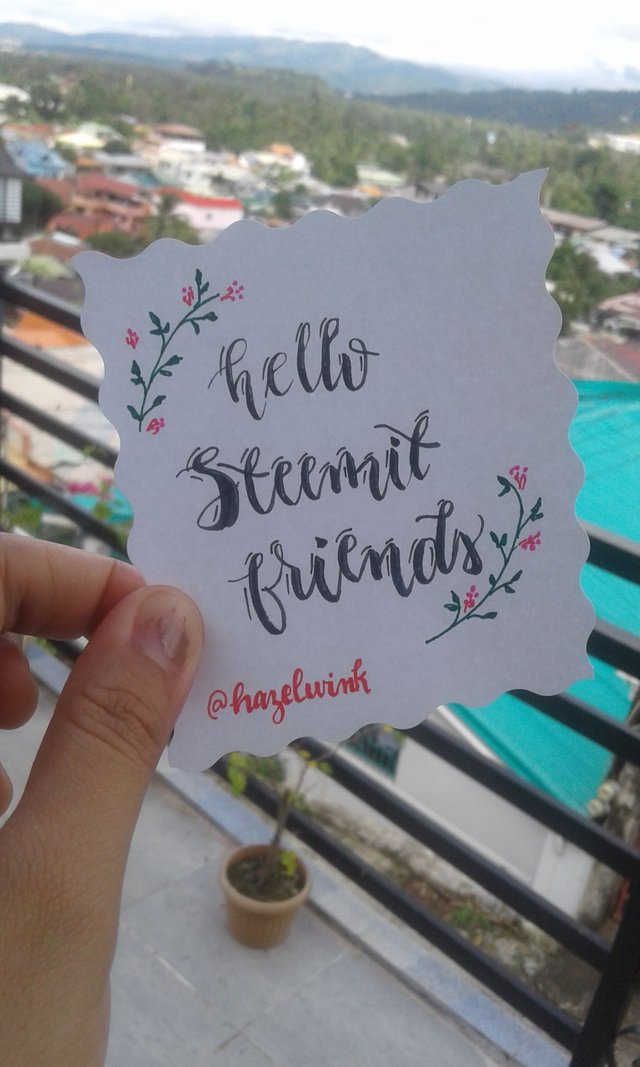 hello
Steemit
friends
@hazelwink